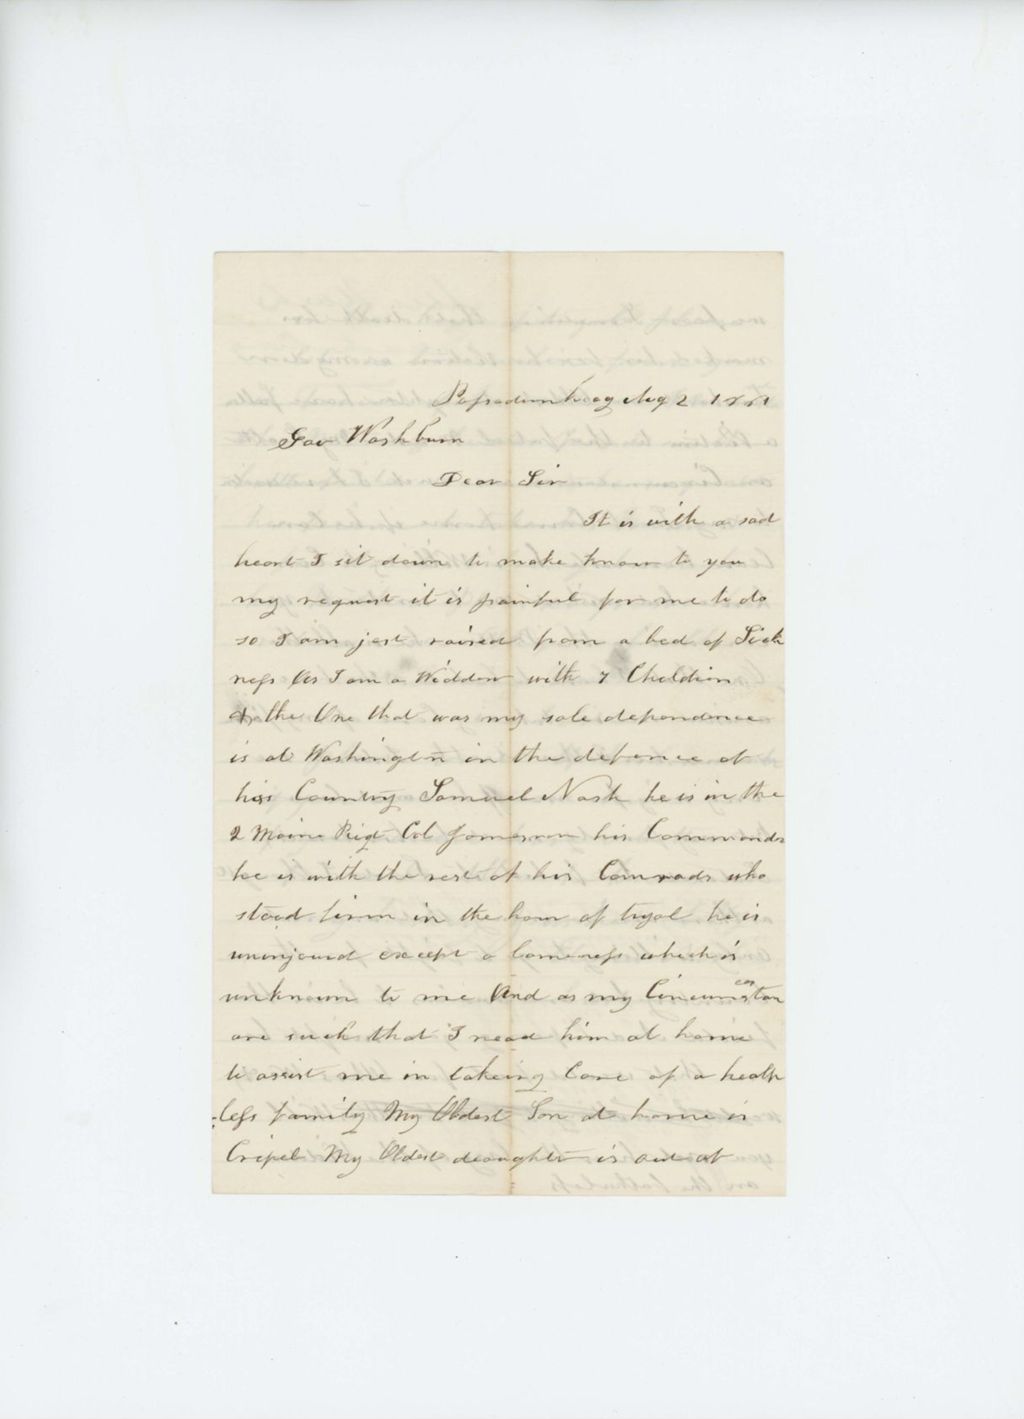 Passadumkeag Aug 2 1861
Gov Washburn
Dear Sir
It is with a sad
heart I sit down to make know to you
my request it is painful for me to do
so I am jest raised from a bed of Sick
ness As I am a Widdow with 7 Cheldren
& the One that was my sole dependence
is at Washington in the defence of
his Country Samuel Nash he is in the
2 Maine Rigt Col Jameson his Commander
he is with the rest of his Comrads who
stood firm in the hour of tryal he is
uninjourd except a lameness which is
unknown to me And as my Circumstan
ces
are such that I need him at home
to assist me in takeing Care of a healp
less family My Oldest Son at home is
Cripel My Oldest deaughter is out of